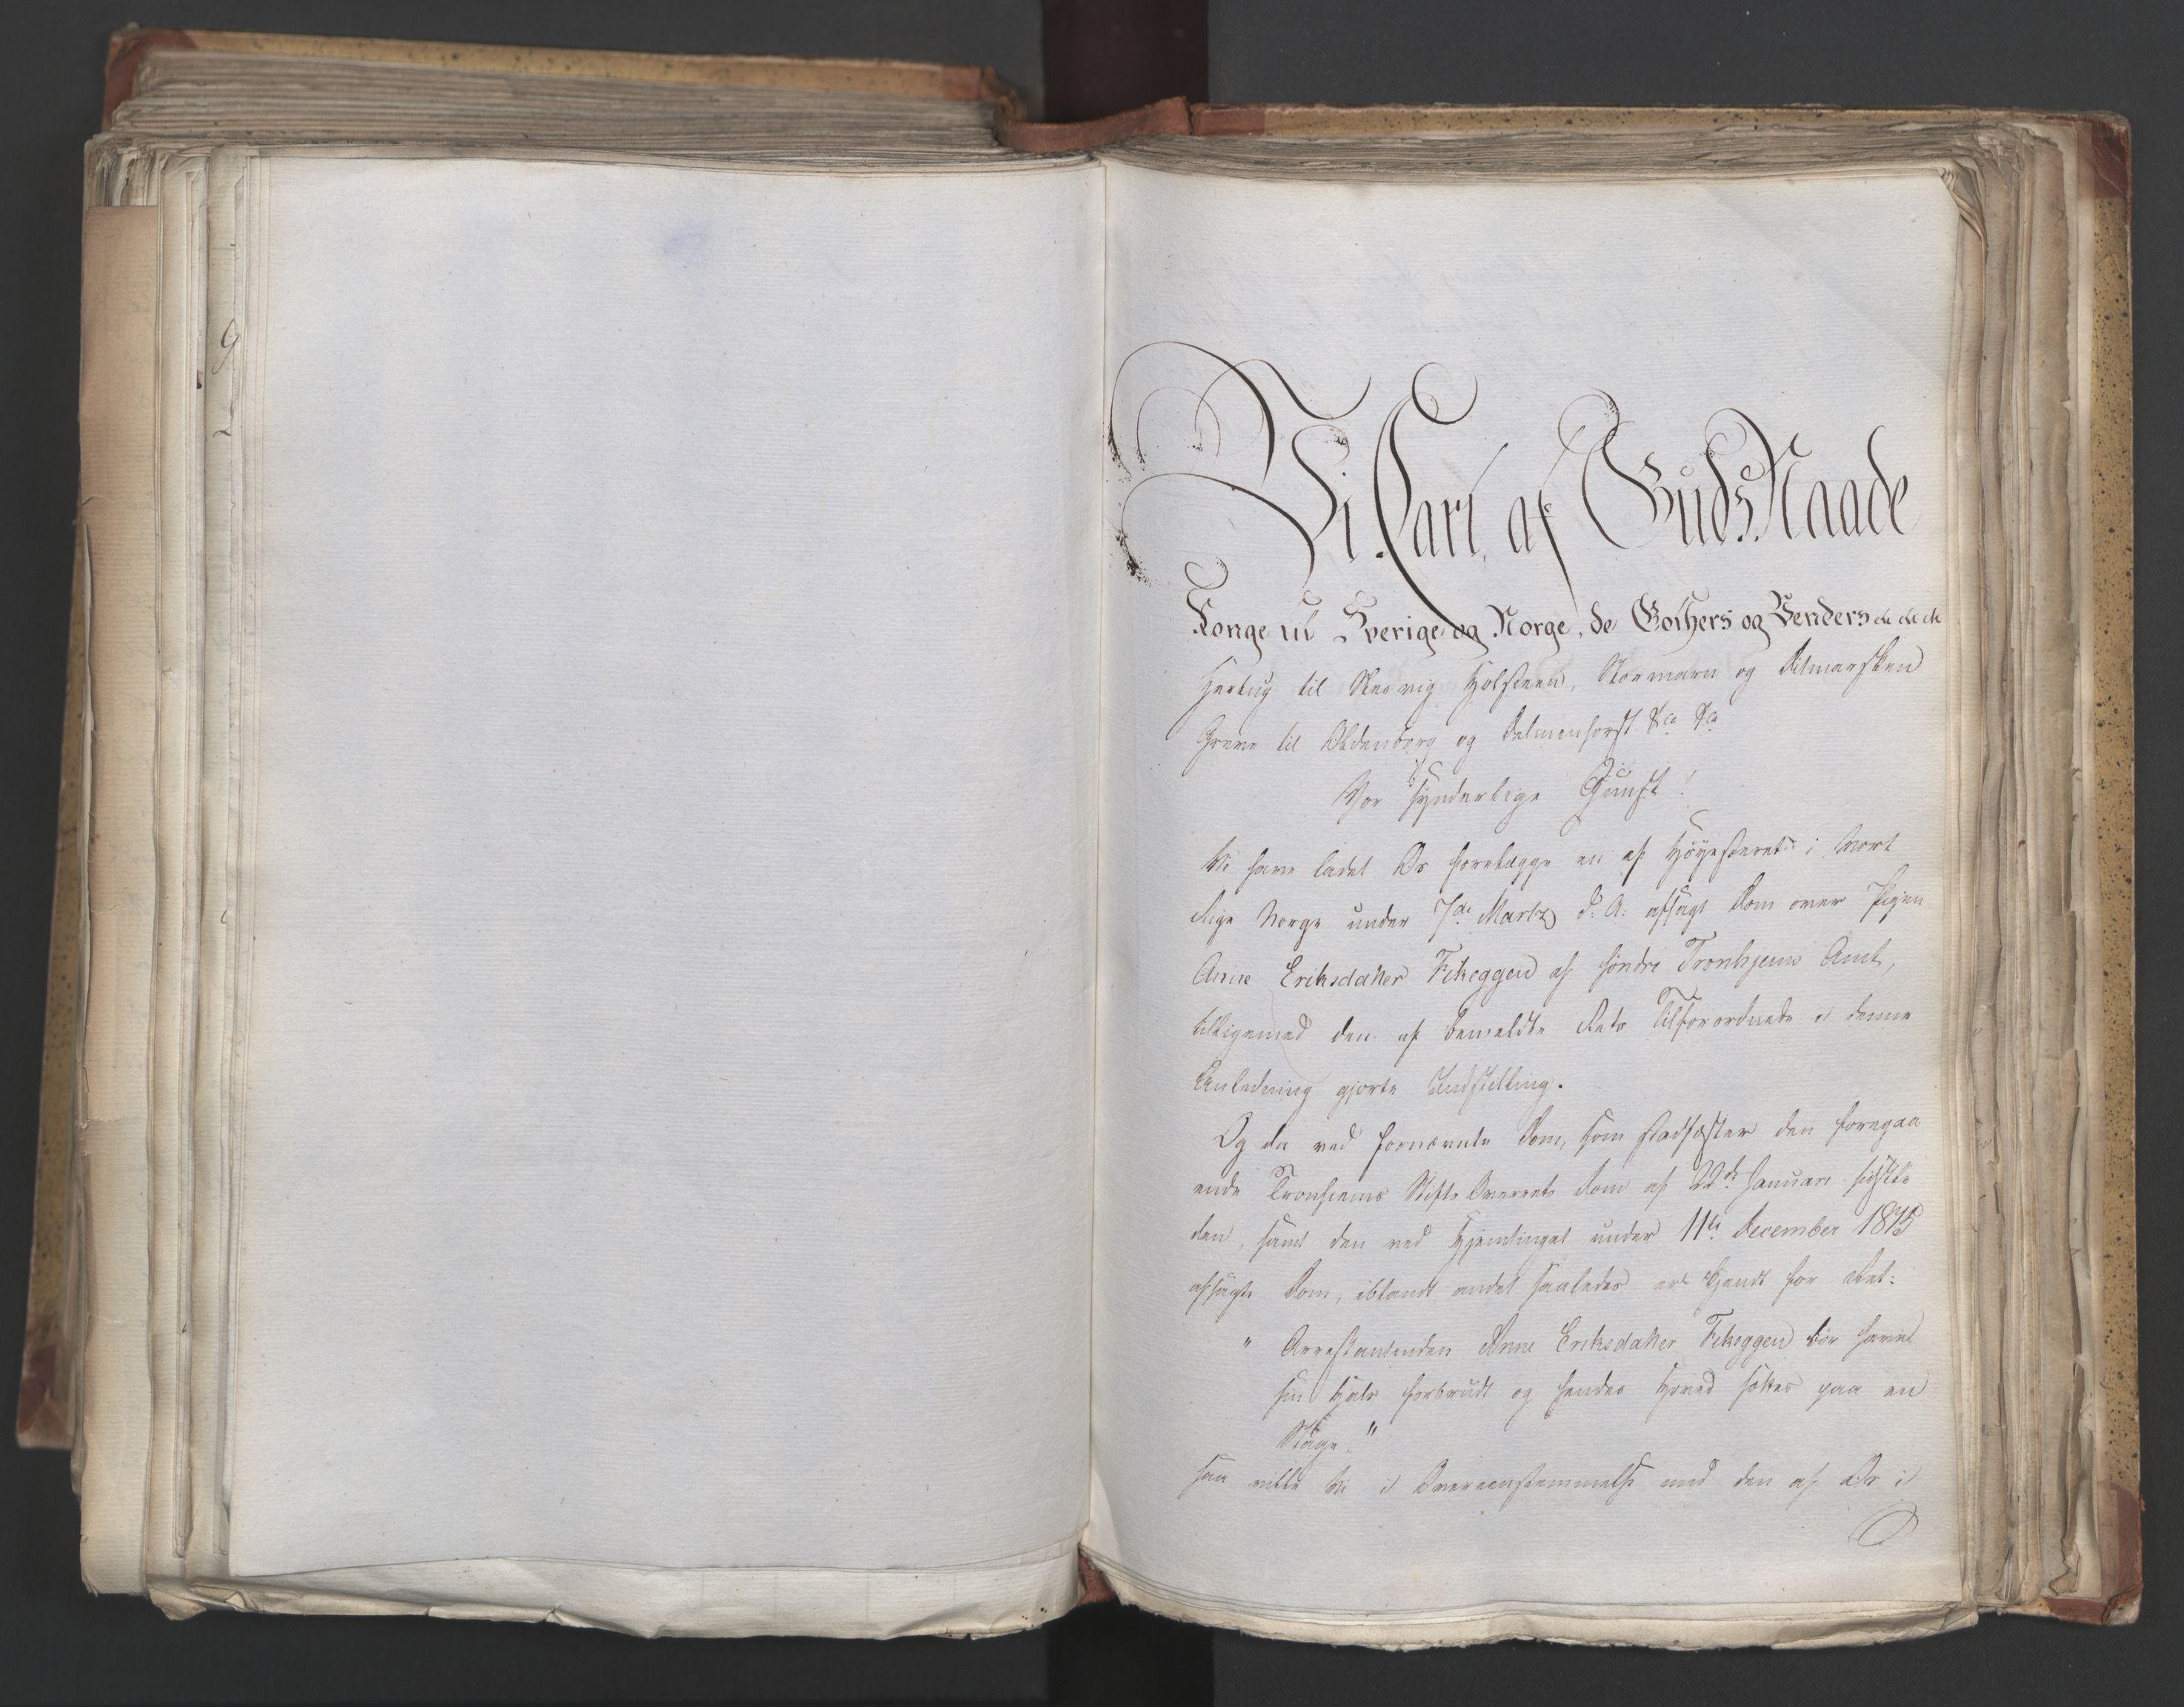 Vi Carl af Guds Naade
Konge til Sverige og Norge, de Gothers og Venders &c &c &c
Hertug til Slesvig Holsteen, Stormarn og Ditmarsken
Greve til Oldenborg og Delmenhorst &ca &ca
Vor synderlige Gunst!
Vi have ladet Os forelægge en af Høyesteret i Vort
Rige Norge under 7de Martz d. A. afsagt Dom over Pigen
Anne Eriksdatter Fikeggen af søndre Tronhjems Amt,
tilligemed den af bemeldte Rets Tilforordnede i denne
Anledning gjorte Indstilling.
Og da ved fornævnte Dom, som stadfæster den foregaa
ende Tronhiems Stifts Overrets Dom af 22de Januari sidstle
den, samt den ved Hjemtinget under 11te December 1815
afsagte Dom, iblandt andet saaledes er kjendt for Ret:
" Arrestantinden Anne Eriksdatter Fikeggen bør have
sin Hals forbrudt og hendes Hoved sættes paa en
Stage."
saa ville Vi i Overeensstemmelse med den af Os i